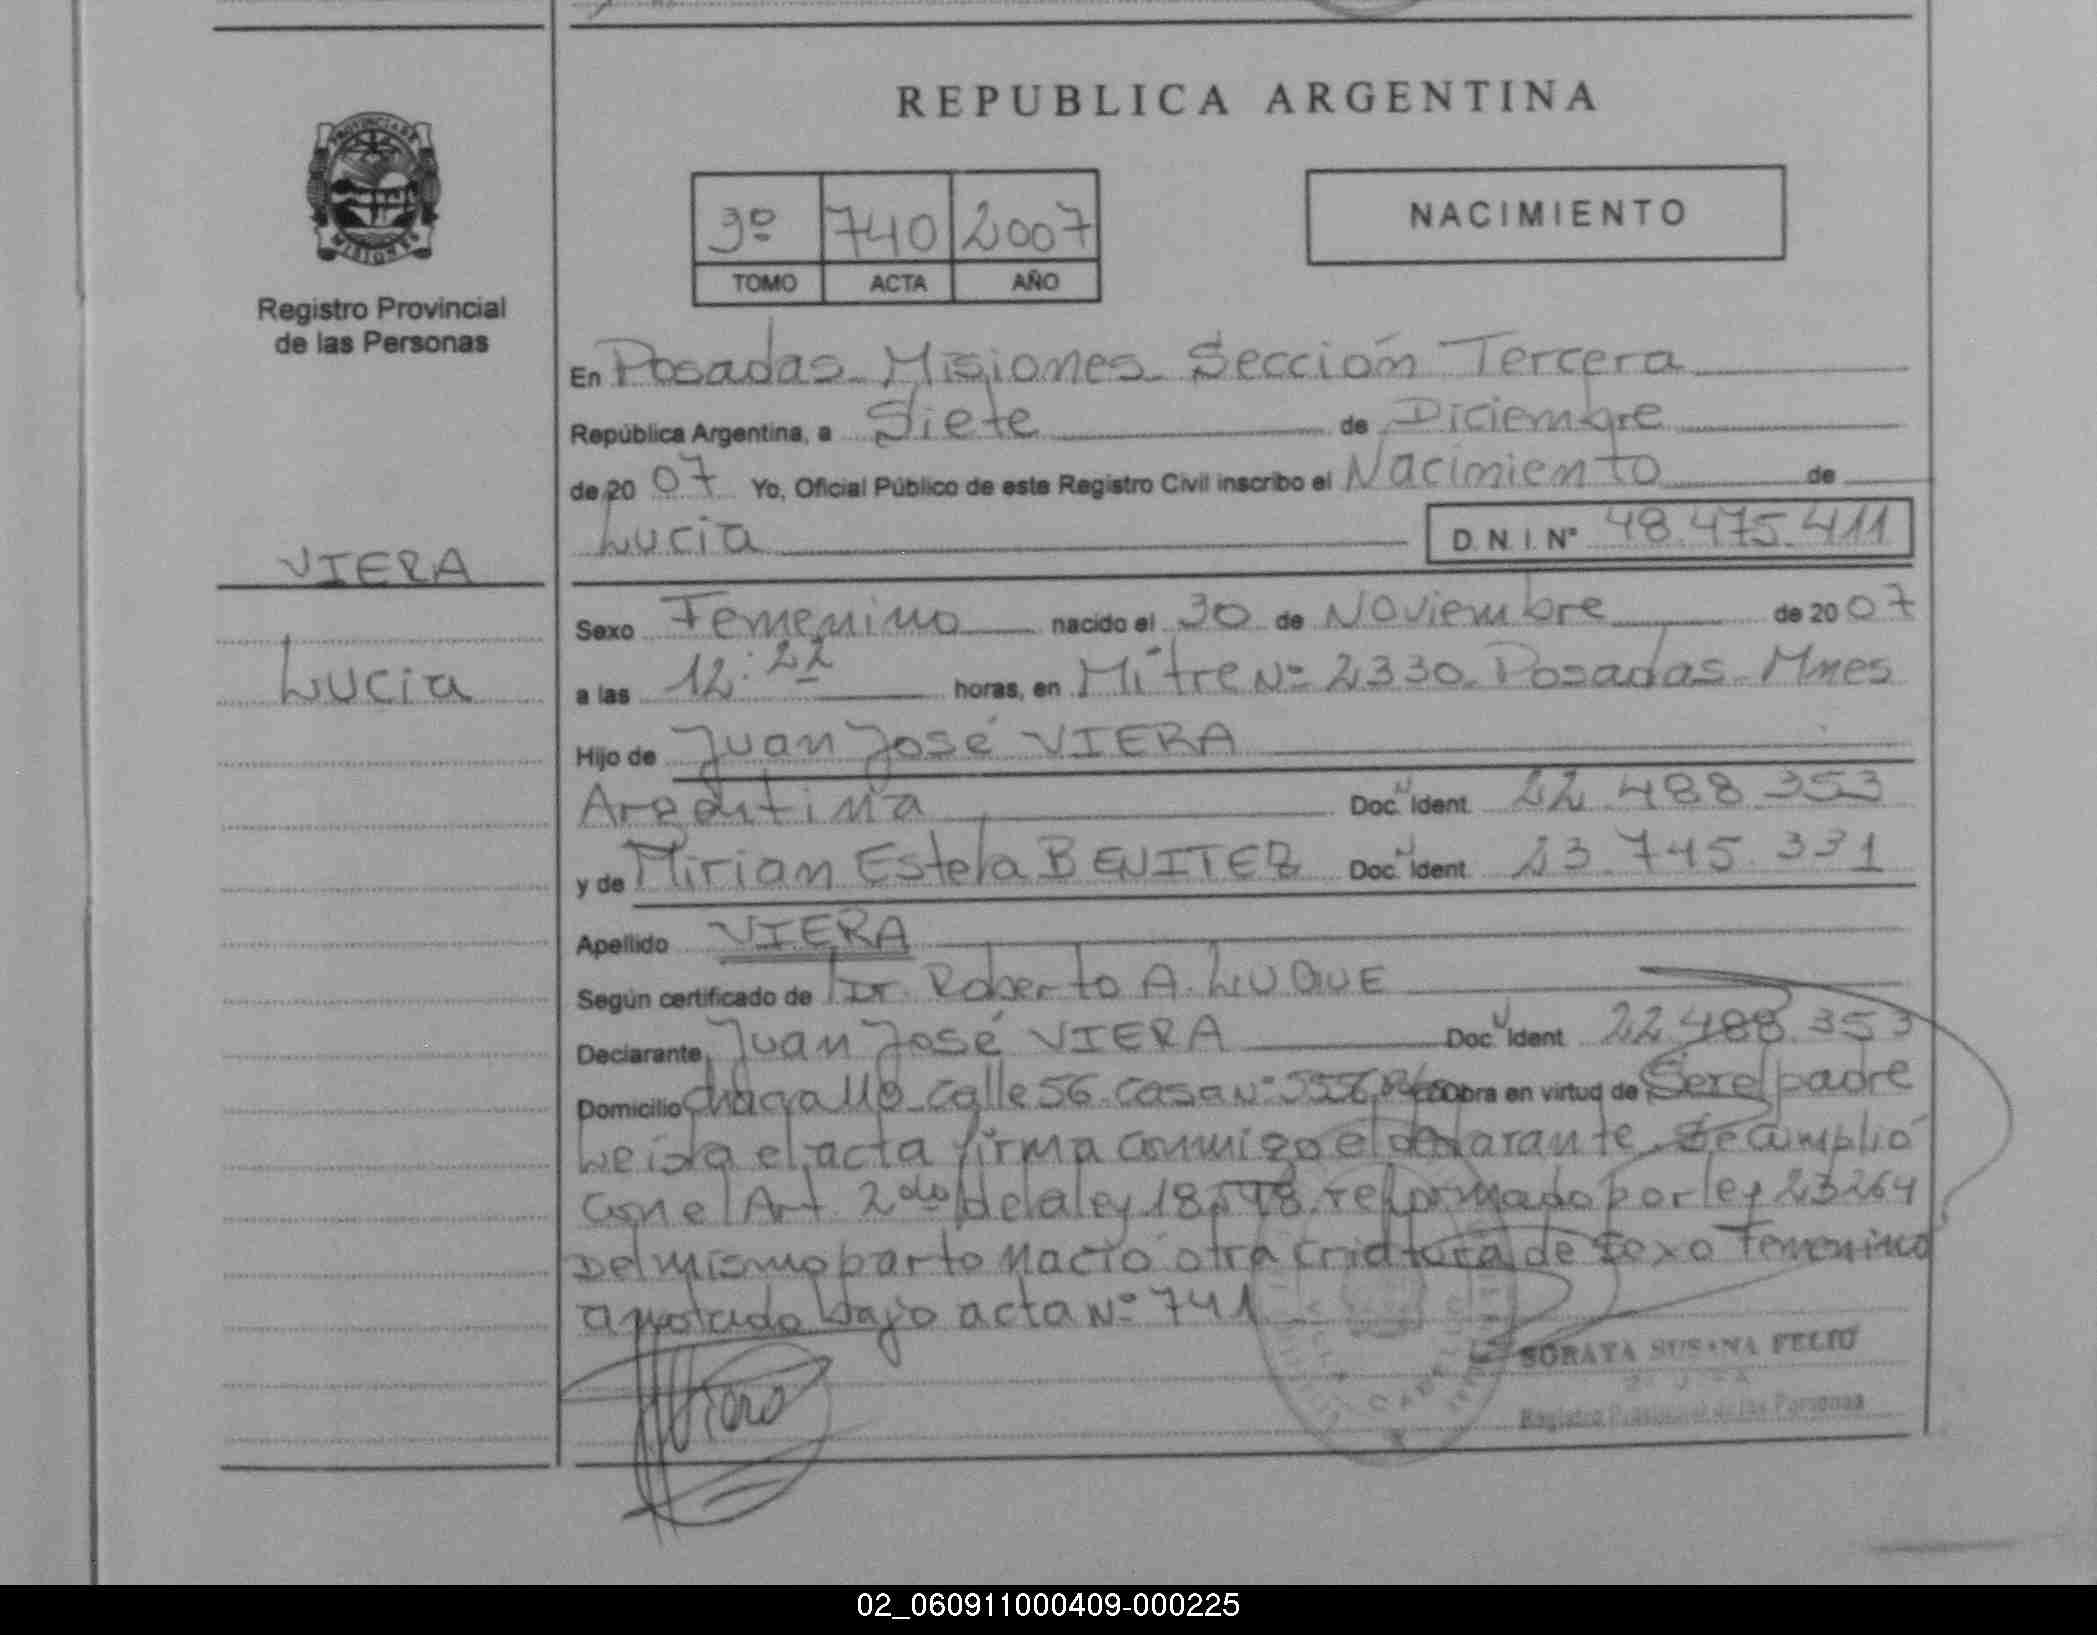 REPUBLICA ARGENTINA
PROVINCIA DE
MISIONES
Registro Provincial
de las Personas
3º 740 2007
TOMO ACTA AÑO
NACIMIENTO
En Posadas Misiones Sección Tercera
República Argentina, a Siete de Diciembre
de 20 07 Yo, Oficial Público de este Registro Civil inscribo el Nacimiento de
Lucia D.N.I. Nº 48.475.411
VIERA
Lucia
Sexo Femenino nacido el 30 de Noviembre de 20 07
a las 12:22 horas, en Mitre Nº 2330 Posadas Mnes
Hijo de Juan José VIERA
Argentina Doc. Ident 22.488.353
y de Mirian Estela BENITEZ Doc. Ident 23.745.331
Apellido VIERA
Según certificado de Dr. Roberto A. LUQUE
Declarante Juan José VIERA Doc Ident 22.488.353
Domicilio calle 56 casa Nº obra en virtud de Ser el padre
Leida el acta firma conmigo el declarante Se cumplió
con el Art 2do de la ley reformado por ley 23264
Del mismo parto nació otra criatura de sexo Femenino
anotado bajo acta Nº 741
SORAYA SUSANA FELIU
Registro Provincial de las Personas
02_060911000409-000225